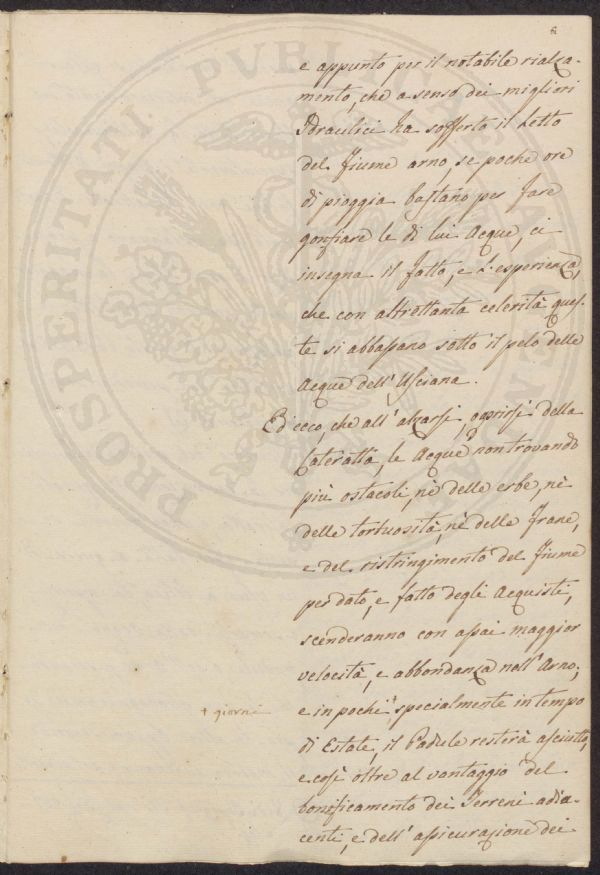 e appunto per il notabile rialza-
mento, che a senso dei migliori
Idraulici ha sofferto il Letto
del fiume arno, se poche ore
di pioggia bastano per fare
gonfiare le di lui Acque, ci
insegna il fatto, e L'esperienza,
che con altrettanta celerità ques-
te si abbassano sotto il pelo delle
Acque dell'Usciana.
Ed ecco, che all'alzarsi, o aprirsi della
Cateratta, le Acque non trovando
più ostacoli, nè delle erbe, nè
delle tortuosità, nè delle frane,
e del ristringimento del fiume
per dato, e fatto degli Acquisti,
scenderanno con assai maggior
velocità, e abbondanza nell'Arno;
e in pochi + specialmente in tempo
+ giorni
di Estate, il Padule resterà asciutto,
e così oltre al vantaggio del
bonificamento dei Terreni adia-
centi, e dell'assicurazione dei
PROSPERITATI PVBLICAE